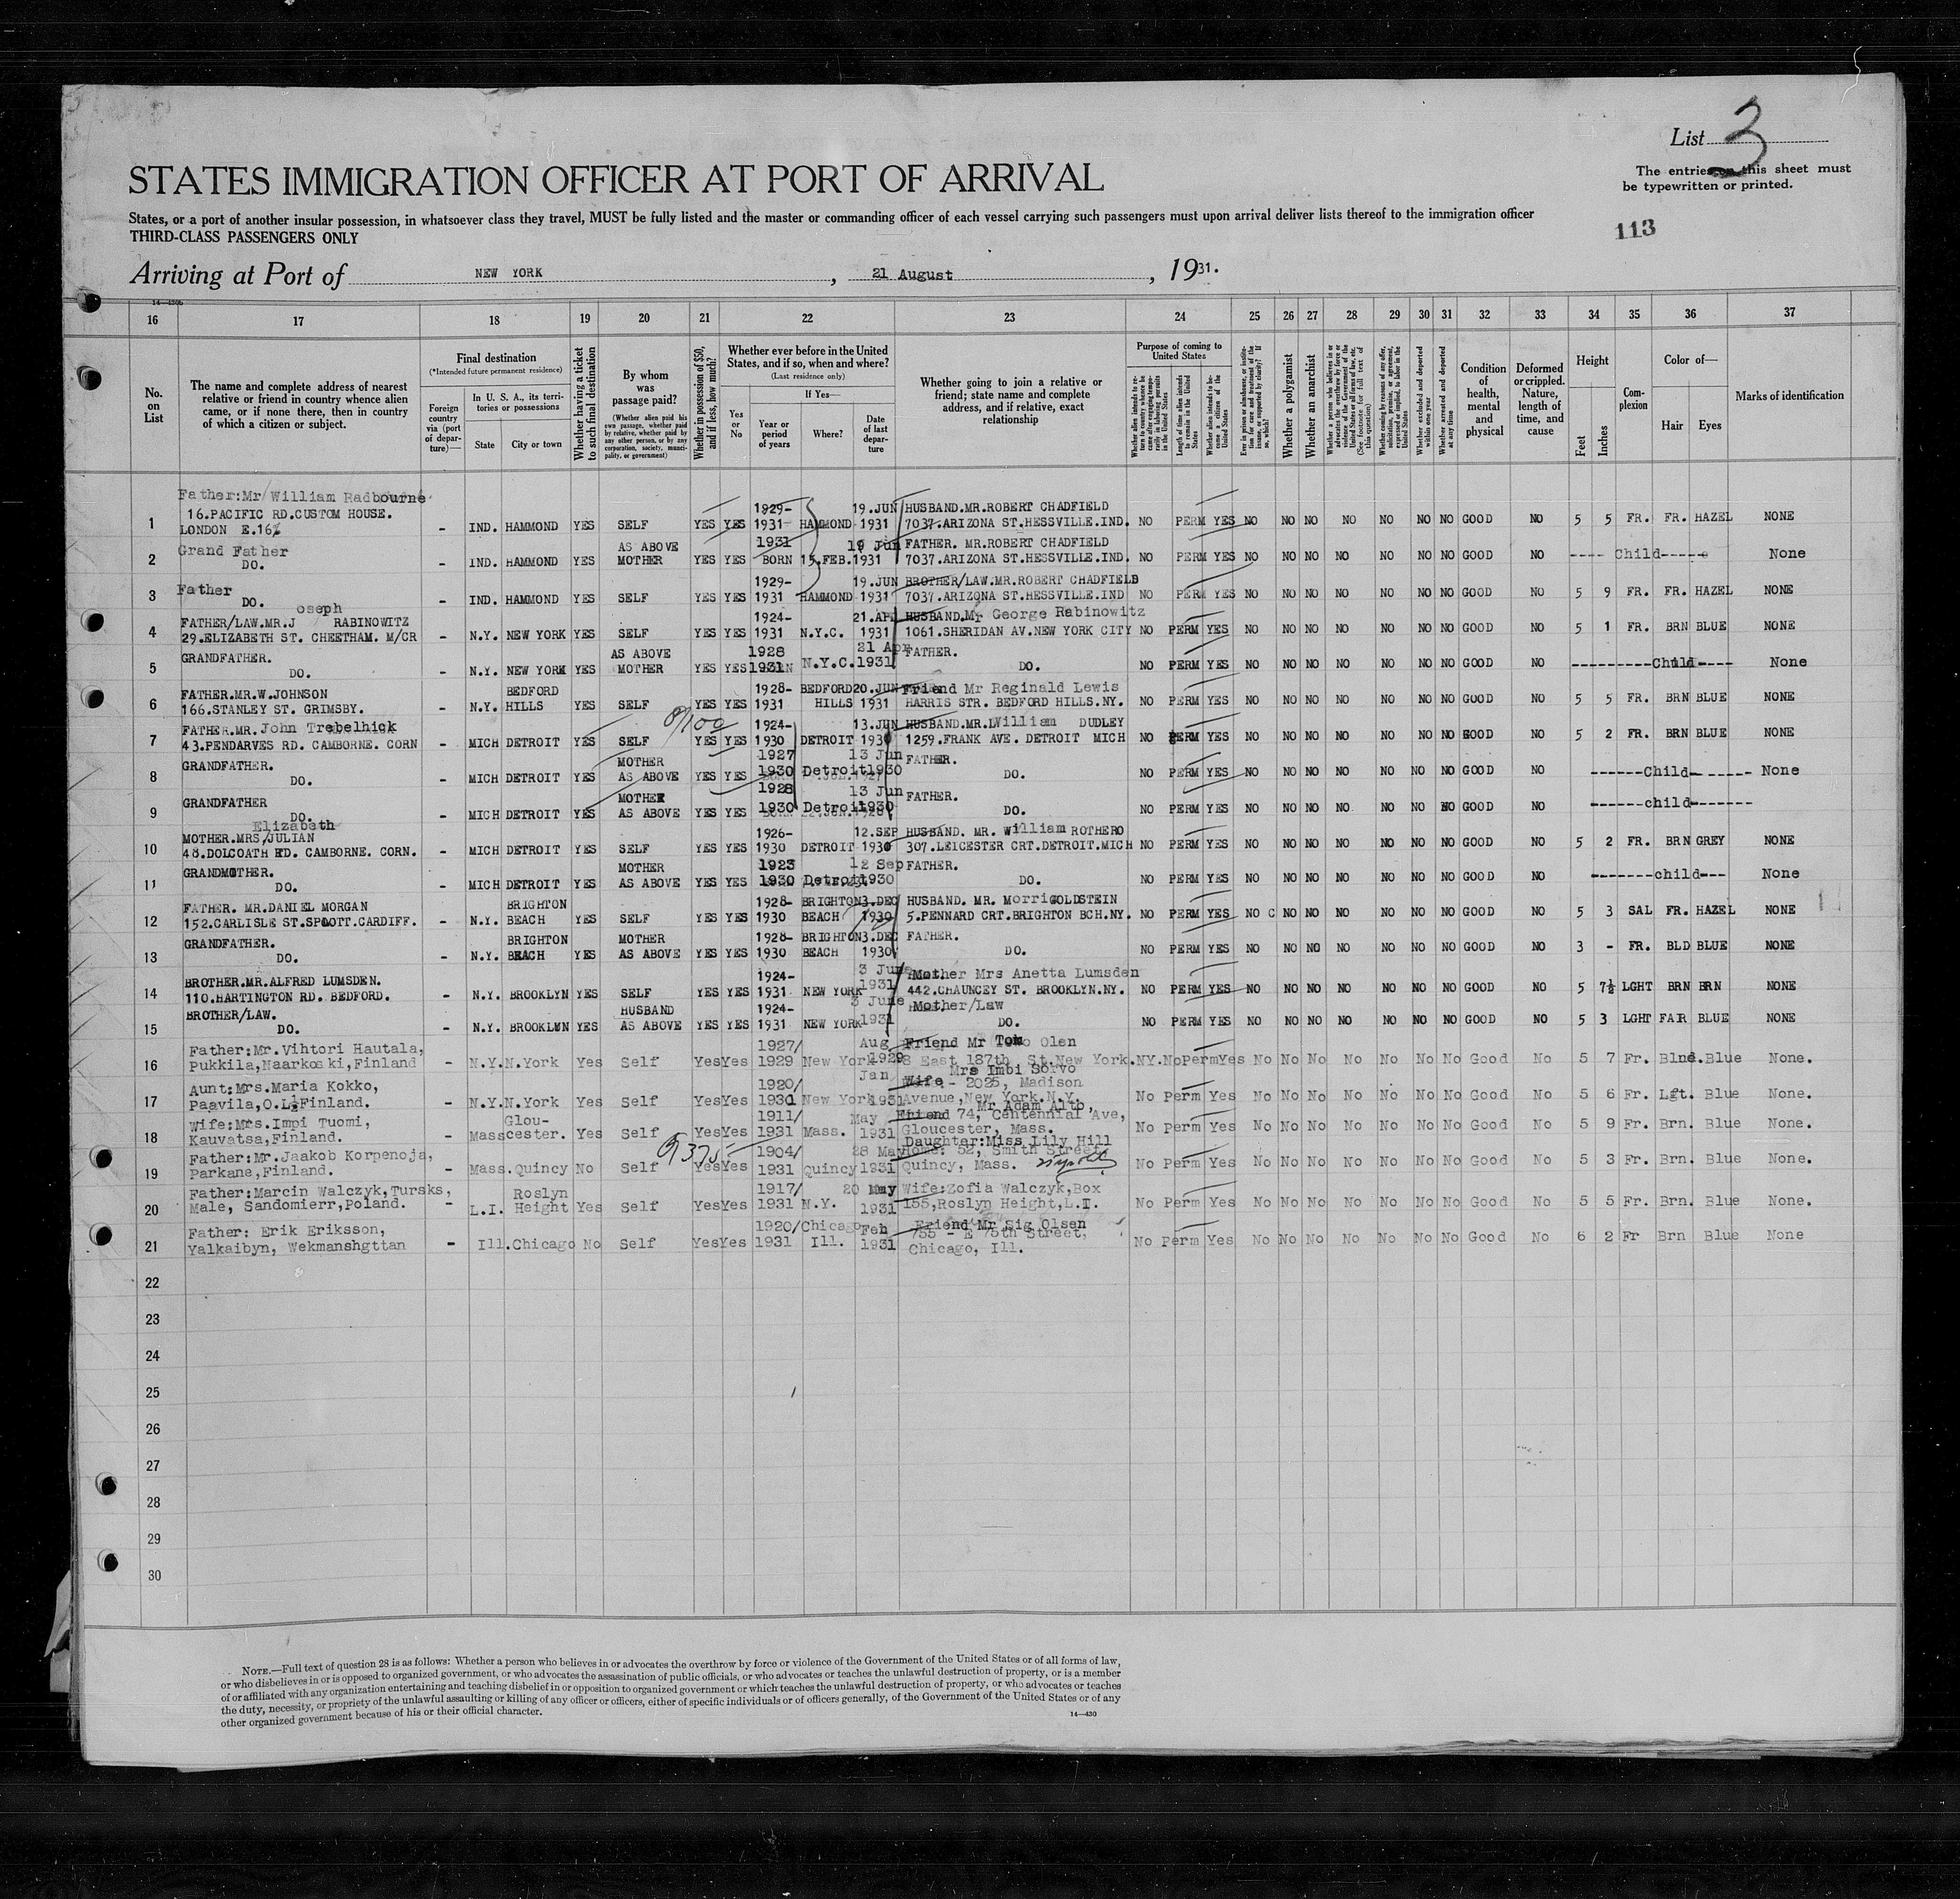 List 3
The entries on this sheet must
be typewritten or printed.
STATES IMMIGRATION OFFICER AT PORT OF ARRIVAL
States, or a port of another insular possession, in whatsoever class they travel, MUST be fully listed and the master or commanding officer of each vessel carrying such passengers must upon arrival deliver lists thereof to the immigration officer
THIRD-CLASS PASSENGERS ONLY
113
Arriving at Port of NEW YORK, 21 August, 1931.
16 17 18 19 20 21 22 23 24 25 26 27 28 29 30 31 32 33 34 35 36 37
No. on List
The name and complete address of nearest relative or friend in country whence alien came, or if none there, then in country of which a citizen or subject.
Final destination
(*Intended future permanent residence)
Foreign country via (port of departure)—
In U. S. A., its territories or possessions
State
City or town
Whether having a ticket to such final destination
By whom was passage paid?
(Whether alien paid his own passage, whether paid by relative, whether paid by any other person, or by any corporation, society, municipality, or government)
Whether in possession of $50, and if less, how much?
Whether ever before in the United States, and if so, when and where?
(Last residence only)
Yes or No
If Yes—
Year or period of years
Where?
Date of last departure
Whether going to join a relative or friend; state name and complete address, and if relative, exact relationship
Purpose of coming to United States
Whether alien intends to return to country whence he came after engaging temporarily in laboring pursuits in the United States
Length of time alien intends to remain in the United States
Whether alien intends to become a citizen of the United States
Ever in prison or almshouse, or institution for care and treatment of the insane, or supported by charity? If so, which?
Whether a polygamist
Whether an anarchist
Whether a person who believes in or advocates the overthrow by force or violence of the Government of the United States or all forms of law, etc. (See footnote for full text of this question)
Whether coming by reason of any offer, solicitation, promise, or agreement, expressed or implied, to labor in the United States
Whether excluded and deported within one year
Whether arrested and deported at any time
Condition of health, mental and physical
Deformed or crippled. Nature, length of time, and cause
Height
Feet
Inches
Complexion
Color of—
Hair
Eyes
Marks of identification
Father:Mr William Radbourne
16.PACIFIC RD.CUSTOM HOUSE. 1929- 19.JUN HUSBAND.MR.ROBERT CHADFIELD
1 LONDON E.16 - IND. HAMMOND YES SELF YES YES 1931 HAMMOND 1931 7037.ARIZONA ST.HESSVILLE.IND. NO PERM YES NO NO NO NO NO NO NO GOOD NO 5 5 FR. FR. HAZEL NONE
Grand Father AS ABOVE 1931 19 Jun FATHER. MR.ROBERT CHADFIELD
2 DO. - IND. HAMMOND YES MOTHER YES YES BORN 15.FEB.1931 7037.ARIZONA ST.HESSVILLE.IND. NO PERM YES NO NO NO NO NO NO NO GOOD NO ---- Child ----- None
Father 1929- 19.JUN BROTHER/LAW.MR.ROBERT CHADFIELD
3 DO. - IND. HAMMOND YES SELF YES YES 1931 HAMMOND 1931 7037.ARIZONA ST.HESSVILLE.IND NO PERM YES NO NO NO NO NO NO NO GOOD NO 5 9 FR. FR. HAZEL NONE
FATHER/LAW.MR.Joseph RABINOWITZ 1924- 21.APL HUSBAND.Mr George Rabinowitz
4 29.ELIZABETH ST. CHEETHAM. M/CR - N.Y. NEW YORK YES SELF YES YES 1931 N.Y.C. 1931 1061.SHERIDAN AV.NEW YORK CITY NO PERM YES NO NO NO NO NO NO NO GOOD NO 5 1 FR. BRN BLUE NONE
GRANDFATHER. AS ABOVE 1928 21 Apr FATHER.
5 DO. - N.Y. NEW YORK YES MOTHER YES YES 1931 N.Y.C. 1931 DO. NO PERM YES NO NO NO NO NO NO NO GOOD NO ---------Child---- None
FATHER.MR.W.JOHNSON BEDFORD 1928- BEDFORD 20.JUN Friend Mr Reginald Lewis
6 166.STANLEY ST. GRIMSBY. - N.Y. HILLS YES SELF YES YES 1931 HILLS 1931 HARRIS STR. BEDFORD HILLS.NY. NO PERM YES NO NO NO NO NO NO NO GOOD NO 5 5 FR. BRN BLUE NONE
FATHER.MR.John Trebelhick 1924- 13.JUN HUSBAND.MR.William DUDLEY
7 43.PENDARVES RD. CAMBORNE. CORN - MICH DETROIT YES SELF YES YES 1930 DETROIT 1930 1259.FRANK AVE. DETROIT MICH NO PERM YES NO NO NO NO NO NO NO GOOD NO 5 2 FR. BRN BLUE NONE
GRANDFATHER. MOTHER 1927 13 Jun FATHER.
8 DO. - MICH DETROIT YES AS ABOVE YES YES 1930 Detroit 1930 DO. NO PERM YES NO NO NO NO NO NO NO GOOD NO ------Child------- None
GRANDFATHER MOTHER 1928 13 Jun FATHER.
9 DO. - MICH DETROIT YES AS ABOVE YES YES 1930 Detroit 1930 DO. NO PERM YES NO NO NO NO NO NO NO GOOD NO ------child--------
MOTHER.MRS Elizabeth/JULIAN 1926- 12.SEP HUSBAND. MR. William ROTHERO
10 48.DOLCOATH RD. CAMBORNE. CORN. - MICH DETROIT YES SELF YES YES 1930 DETROIT 1930 307.LEICESTER CRT.DETROIT.MICH NO PERM YES NO NO NO NO NO NO NO GOOD NO 5 2 FR. BRN GREY NONE
GRANDMOTHER. MOTHER 1923 12 Sep FATHER.
11 DO. - MICH DETROIT YES AS ABOVE YES YES 1930 Detroit 1930 DO. NO PERM YES NO NO NO NO NO NO NO GOOD NO -------child--- None
FATHER. MR.DANIEL MORGAN BRIGHTON 1928- BRIGHTON 3.DEC HUSBAND. MR. Morris GOLDSTEIN
12 152.CARLISLE ST.SPLOTT.CARDIFF. - N.Y. BEACH YES SELF YES YES 1930 BEACH 1930 5.PENNARD CRT.BRIGHTON BCH.NY. NO PERM YES NO C NO NO NO NO NO NO GOOD NO 5 3 SAL FR. HAZEL NONE
GRANDFATHER. BRIGHTON MOTHER 1928- BRIGHTON 3.DEC FATHER.
13 DO. - N.Y. BEACH YES AS ABOVE YES YES 1930 BEACH 1930 DO. NO PERM YES NO NO NO NO NO NO NO GOOD NO 3 - FR. BLD BLUE NONE
BROTHER.MR.ALFRED LUMSDEN. 1924- 3 June Mother Mrs Anetta Lumsden
14 110.HARTINGTON RD. BEDFORD. - N.Y. BROOKLYN YES SELF YES YES 1931 NEW YORK 1931 442.CHAUNCEY ST. BROOKLYN.NY. NO PERM YES NO NO NO NO NO NO NO GOOD NO 5 7½ LGHT BRN BRN NONE
BROTHER/LAW. HUSBAND 1924- 3 June Mother/Law
15 DO. - N.Y. BROOKLYN YES AS ABOVE YES YES 1931 NEW YORK 1931 DO. NO PERM YES NO NO NO NO NO NO NO GOOD NO 5 3 LGHT FAIR BLUE NONE
Father:Mr.Vihtori Hautala, 1927/ Aug Friend Mr Olen
16 Pukkila,Naarkoski,Finland - N.Y. N.York Yes Self Yes Yes 1929 New York 1929 8 East 187th St.New York.NY. No Perm Yes No No No No No No No Good No 5 7 Fr. Blnd. Blue None.
Aunt:Mrs.Maria Kokko, 1920/ Jan Mrs Imbi Sorvo Wife - 2025, Madison
17 Paavila,O.L.Finland. - N.Y. N.York Yes Self Yes Yes 1931 New York 1931 Avenue,New York.N.Y. No Perm Yes No No No No No No No Good No 5 6 Fr. Lgt. Blue None.
Wife:Mrs.Impi Tuomi, Glou- 1911/ May Friend Mr Adam Alto, 74, Centennial Ave,
18 Kauvatsa,Finland. - Mass cester. Yes Self Yes Yes 1931 Mass. 1931 Gloucester, Mass. No Perm Yes No No No No No No No Good No 5 9 Fr. Brn. Blue None.
Father:Mr.Jaakob Korpenoja, 1904/ 28 May Daughter:Miss Lily Hill Home: 52, Smith Street,
19 Parkane,Finland. - Mass. Quincy No Self Yes Yes 1931 Quincy 1931 Quincy, Mass. No Perm Yes No No No No No No No Good No 5 3 Fr. Brn. Blue None.
Father:Marcin Walczyk,Tursks, Roslyn 1917/ 20 May Wife:Zofia Walczyk,Box
20 Male, Sandomierr,Poland. - L.I. Height Yes Self Yes Yes 1931 N.Y. 1931 155,Roslyn Height,L.I. No Perm Yes No No No No No No No Good No 5 5 Fr. Brn. Blue None.
Father: Erik Eriksson, 1920/ Chicago Feb Friend Mr Sig Olsen 755 - E 75th Street,
21 Yalkaibyn, Wekmanshgttan - Ill. Chicago No Self Yes Yes 1931 Ill. 1931 Chicago, Ill. No Perm Yes No No No No No No No Good No 6 2 Fr Brn Blue None
22
23
24
25
26
27
28
29
30
NOTE.—Full text of question 28 is as follows: Whether a person who believes in or advocates the overthrow by force or violence of the Government of the United States or of all forms of law,
or who disbelieves in or is opposed to organized government, or who advocates the assassination of public officials, or who advocates or teaches the unlawful destruction of property, or is a member
of or affiliated with any organization entertaining and teaching disbelief in or opposition to organized government or which teaches the unlawful destruction of property, or who advocates or teaches
the duty, necessity, or propriety of the unlawful assaulting or killing of any officer or officers, either of specific individuals or of officers generally, of the Government of the United States or of any
other organized government because of his or their official character.
14—430